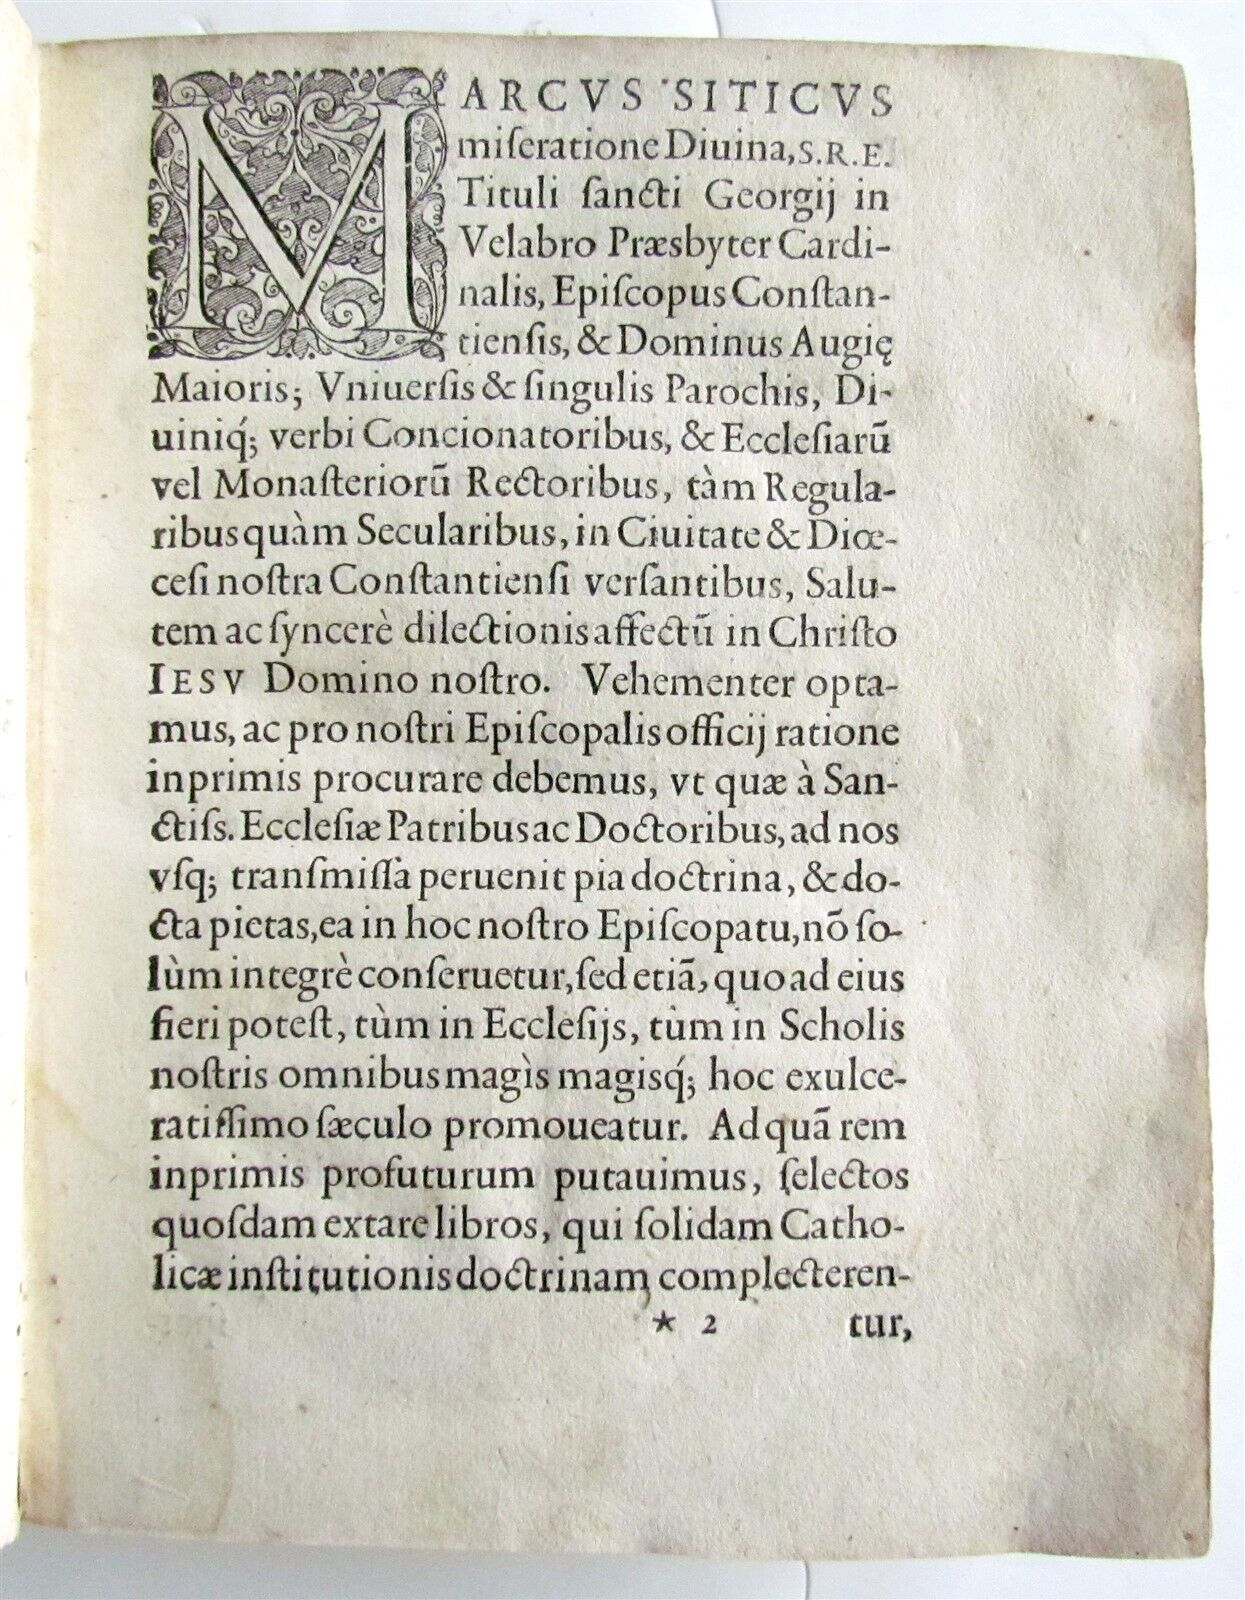 MARCVS SITICVS
miſeratione Diuina, S.R.E.
Tituli ſancti Georgij in
Velabro Præsbyter Cardi-
nalis, Epiſcopus Conſtan-
tienſis, & Dominus Augię
Maioris; Vniuerſis & ſingulis Parochis, Di-
uiniq́; verbi Concionatoribus, & Eccleſiarũ
vel Monaſteriorũ Rectoribus, tàm Regula-
ribus quàm Secularibus, in Ciuitate & Diœ-
ceſi noſtra Conſtantienſi verſantibus, Salu-
tem ac ſyncerè dilectionis affectũ in Chriſto
IESV Domino noſtro. Vehementer opta-
mus, ac pro noſtri Epiſcopalis officij ratione
inprimis procurare debemus, vt quæ à San-
ctiſs. Eccleſiæ Patribus ac Doctoribus, ad nos
vſq; tranſmiſſa peruenit pia doctrina, & do-
cta pietas, ea in hoc noſtro Epiſcopatu, nõ ſo-
lùm integrè conſeruetur, ſed etiã, quo ad eius
fieri poteſt, tùm in Eccleſijs, tùm in Scholis
noſtris omnibus magìs magisq́; hoc exulce-
ratiſſimo ſæculo promoueatur. Ad quã rem
inprimis profuturum putauimus, ſelectos
quoſdam extare libros, qui ſolidam Catho-
licæ inſtitutionis doctrinam complecteren-
* 2 tur,